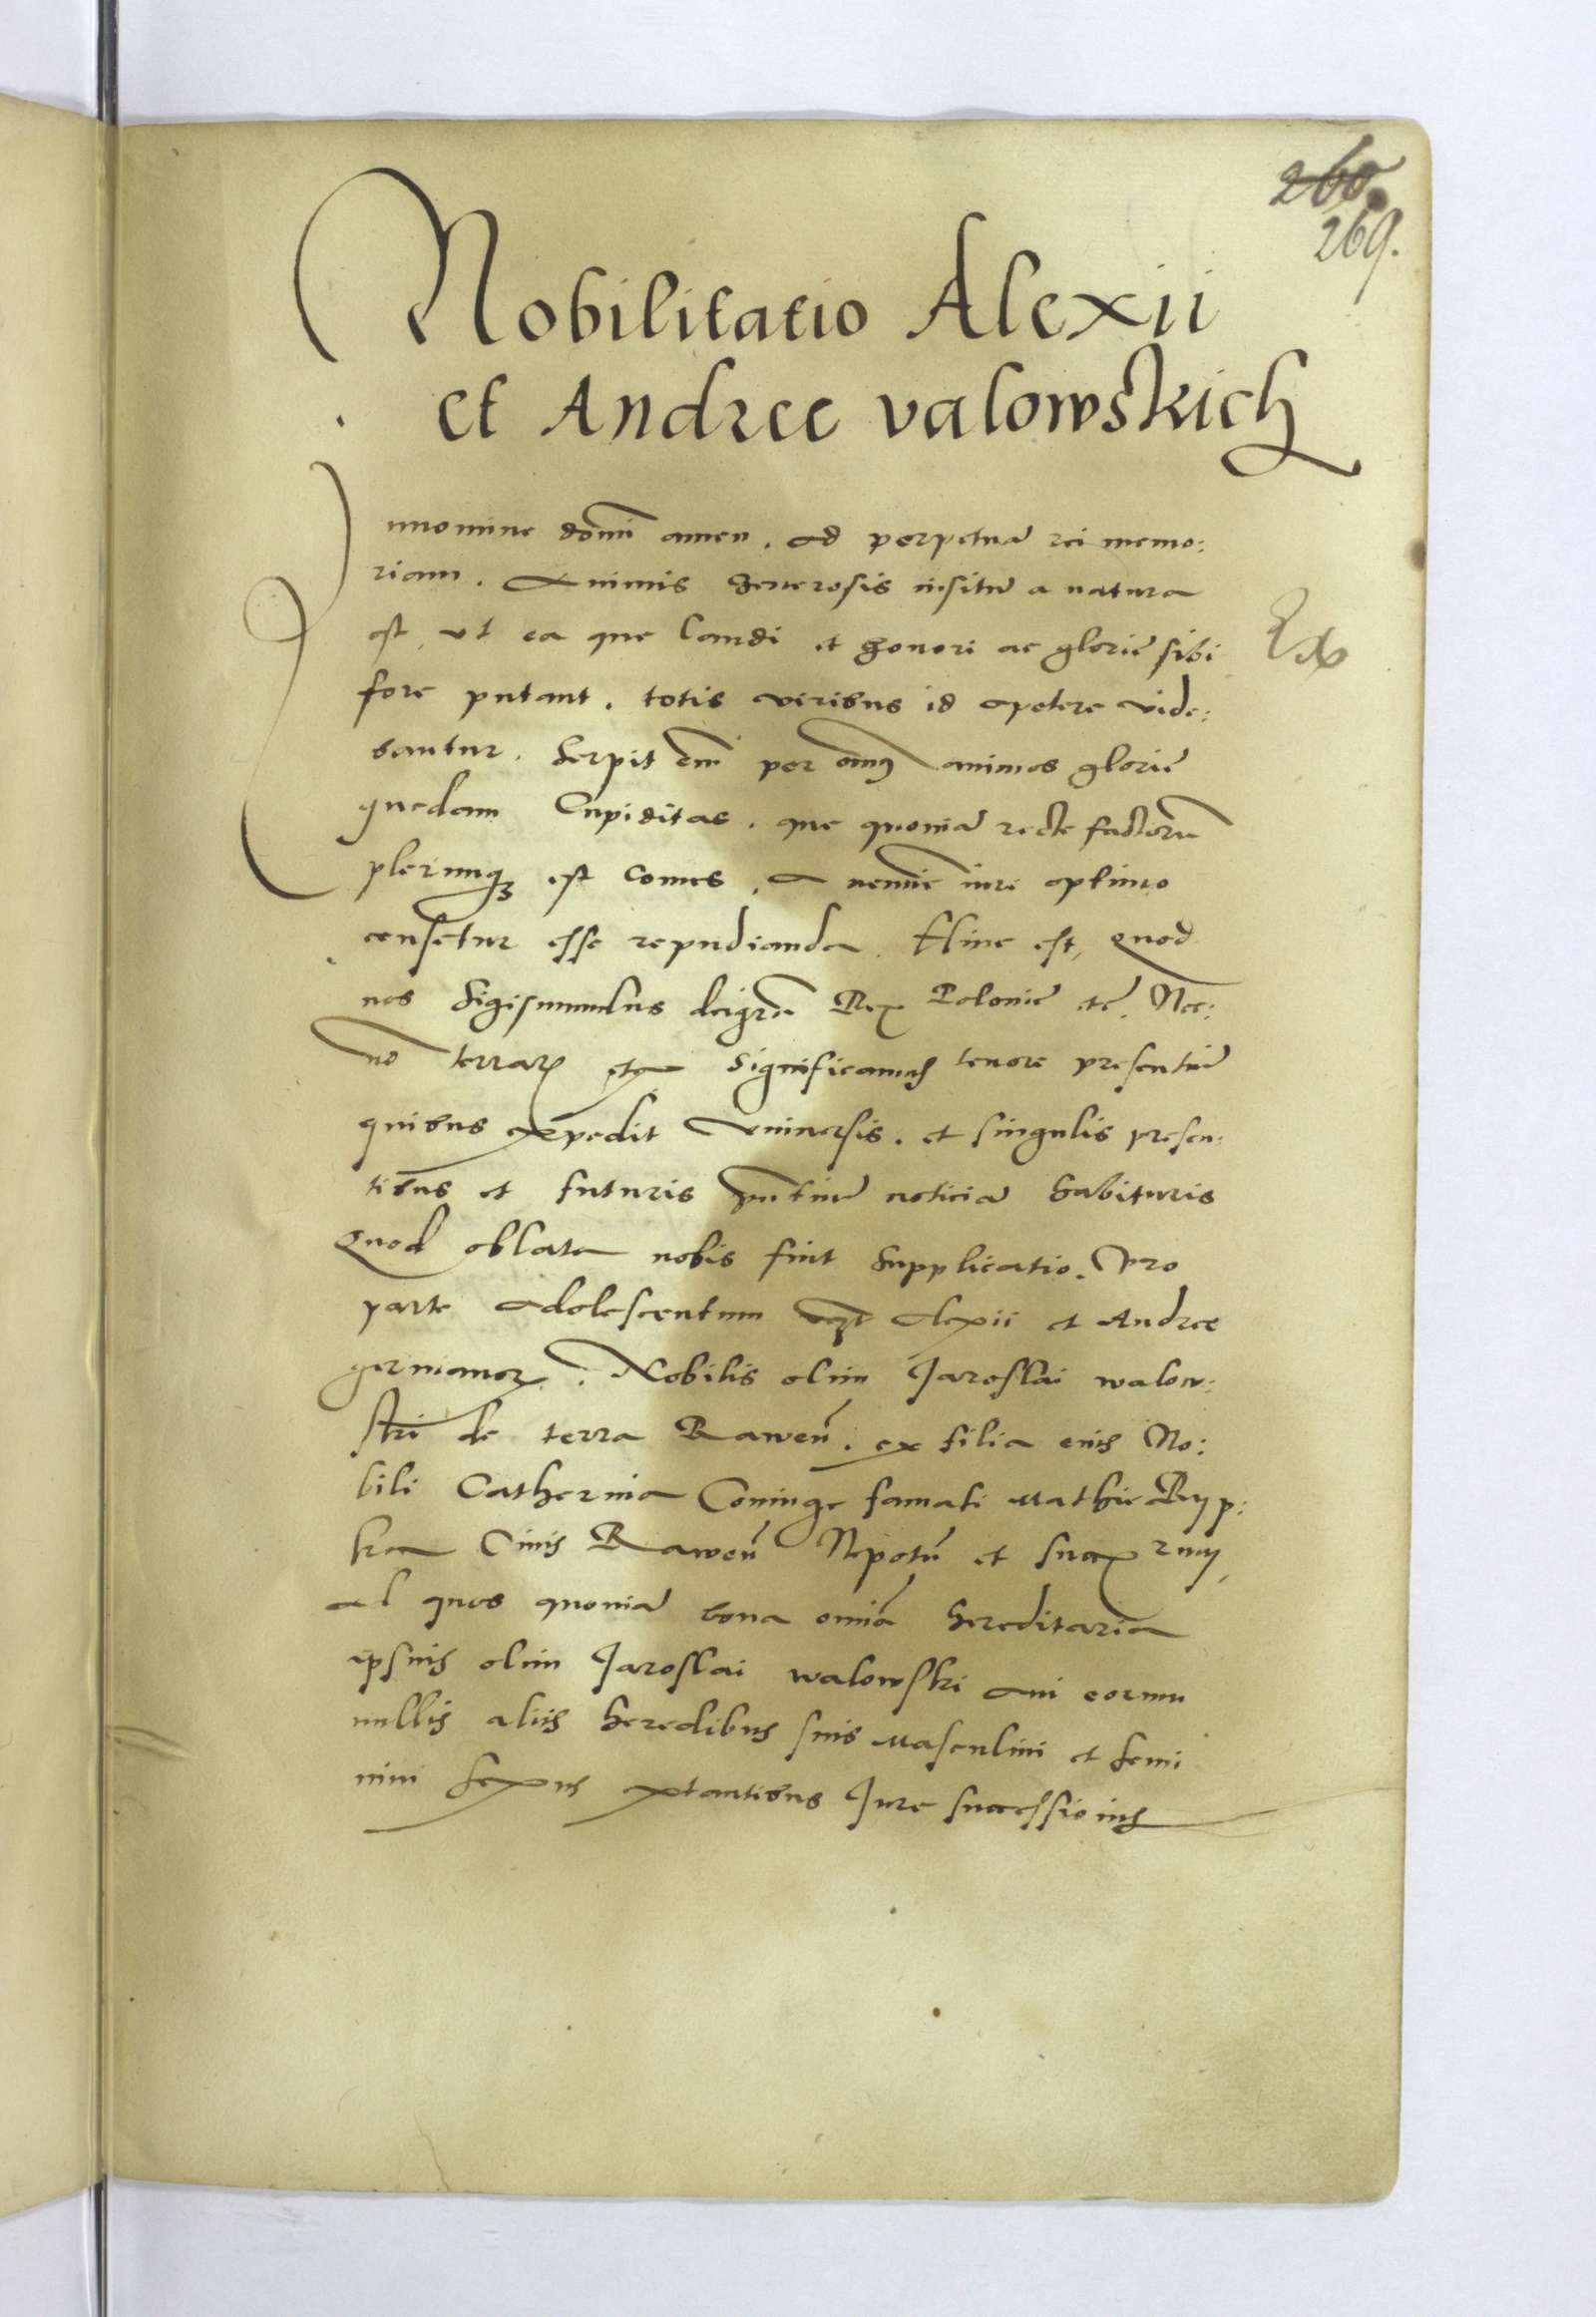 260.
269.
Nobilitatio Alexii
et Andree valowskich
Innomine domi amen. Ad perpetua rei memo:
riam. Animis generosis insitu a natura
est, ut ea que laudi et honori ac glorie sibi
fore putant. totis viribus id apetere vide:
bantur. Serpit em per omes animos glorie
quedam Cupiditas. que quonia recte factoru
plerunqz est Comes, a nemie iure optimo
censetur esse repudianda. Hinc est, quod
nos Sigismundus dei gra Rex Polonie etc. Nec:
no terrar etc Significamus tenore presentiu
quibus expedit Universis. et singulis presen:
tibus et futuris noticia habituris
Quod oblata nobis fuit Supplicatio. Pro
parte Adolescentum Alexii et Andree
germanor. Nobilis olim Jaroslai walow:
ski de terra Rawen. ex filia eius No:
bili Catherina Coniuge famati Mathie Ryp:
ka Civis Rawen Nepotu et suor
Ad quos quonia bona omia hereditaria
ipsius olim Jaroslai walowski avi eorum
nullis aliis heredibus suis Masculini et femi
nini sexus extantibus Jure successionis